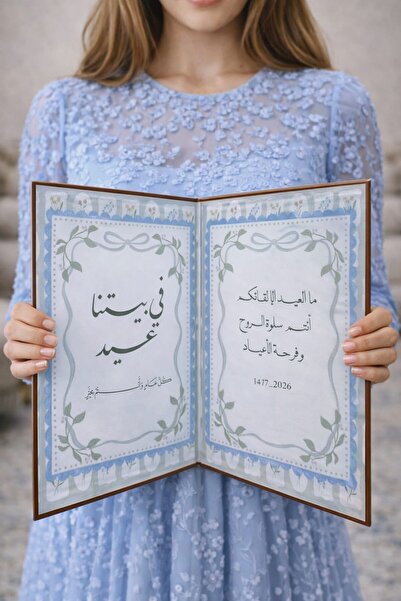 في بيتنا
عيد
كل عام وأنتم بخير
ما العيد إلا لقائكم
أنتم سلوة الروح
وفرحة الأعياد
1417_2026